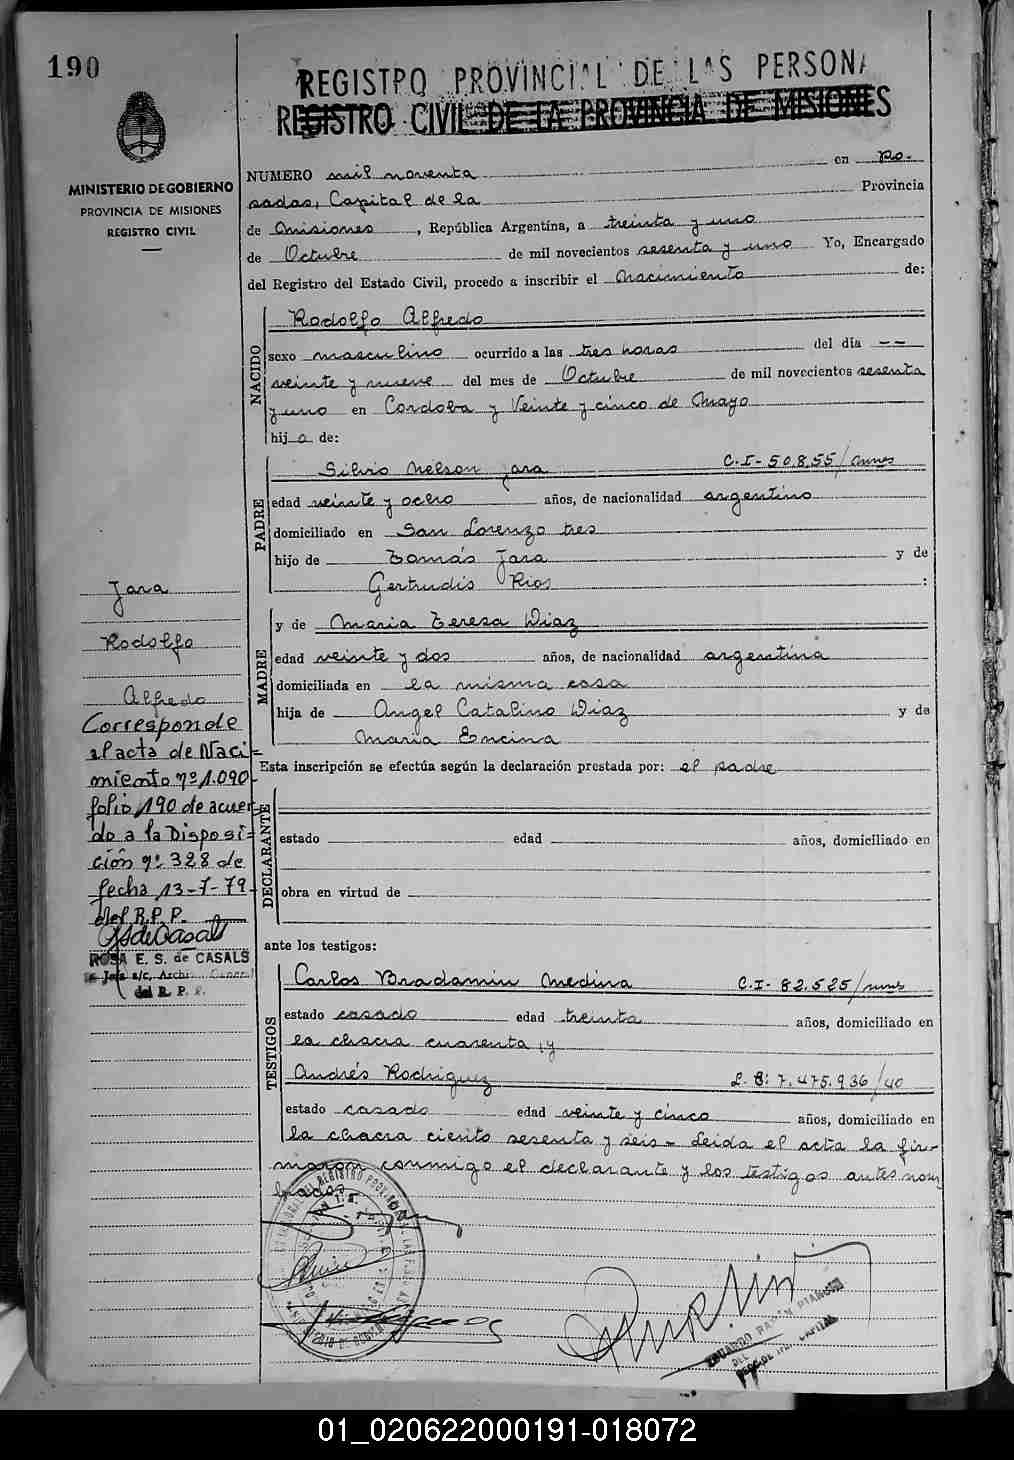 190
REGISTRO PROVINCIAL DE LAS PERSONA
REGISTRO CIVIL DE LA PROVINCIA DE MISIONES
MINISTERIO DE GOBIERNO
PROVINCIA DE MISIONES
REGISTRO CIVIL
NUMERO mil noventa en Po-
sadas, Capital de la Provincia
de Misiones, República Argentina, a treinta y uno
de Octubre de mil novecientos sesenta y uno Yo, Encargado
del Registro del Estado Civil, procedo a inscribir el nacimiento de:
NACIDO
Rodolfo Alfredo
sexo masculino ocurrido a las tres horas del día --
veinte y nueve del mes de Octubre de mil novecientos sesenta
y uno en Cordoba y Veinte y cinco de Mayo
hijo de:
PADRE
Silvio Nelson Jara C.I-50.855/mnes
edad veinte y ocho años, de nacionalidad argentino
domiciliado en San Lorenzo tres
hijo de Tomás Jara y de
Gertrudis Rios :
MADRE
y de Maria Teresa Diaz
edad veinte y dos años, de nacionalidad argentina
domiciliada en la misma casa
hija de Angel Catalino Diaz y de
Maria Encina
Esta inscripción se efectúa según la declaración prestada por: el padre
DECLARANTE
estado edad años, domiciliado en
obra en virtud de
ante los testigos:
TESTIGOS
Carlos Bradamin Medina C.I-82.525/mnes
estado casado edad treinta años, domiciliado en
la chacra cuarenta, y
Andrés Rodriguez L.E: 7.475.936/40
estado casado edad veinte y cinco años, domiciliado en
la chacra ciento sesenta y seis - Leida el acta la fir-
maron conmigo el declarante y los testigos antes nom
brados
Jara
Rodolfo
Alfredo
Corresponde
al acta de Naci=
miento nº 1.090-
folio 190 de acuer-
do a la Disposi=
ción nº 328 de
fecha 13-7-79-
del R.P.P.
ROSA E. S. de CASALS
Jefa a/c. Archivo General
del R. P. P.
EDUARDO RAMÓN
CAPITAL
01_020622000191-018072